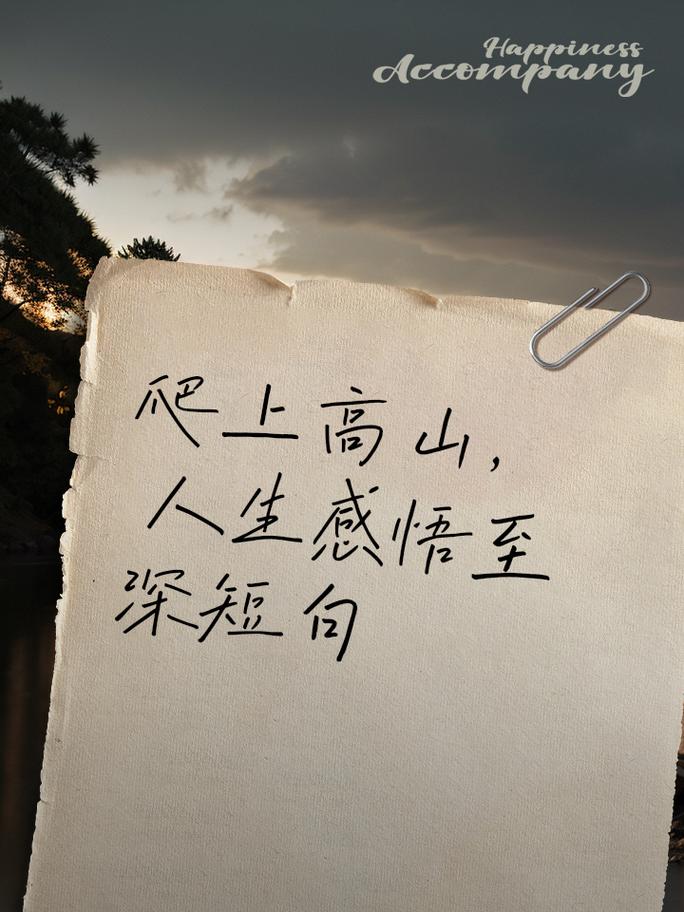 Happiness
Accompany
爬上高山，
人生感悟至
深短句